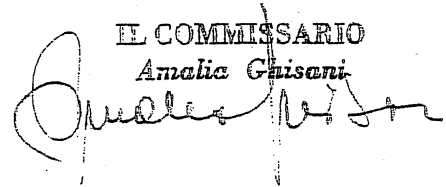 IL COMMISSARIO
Amalia Ghisani